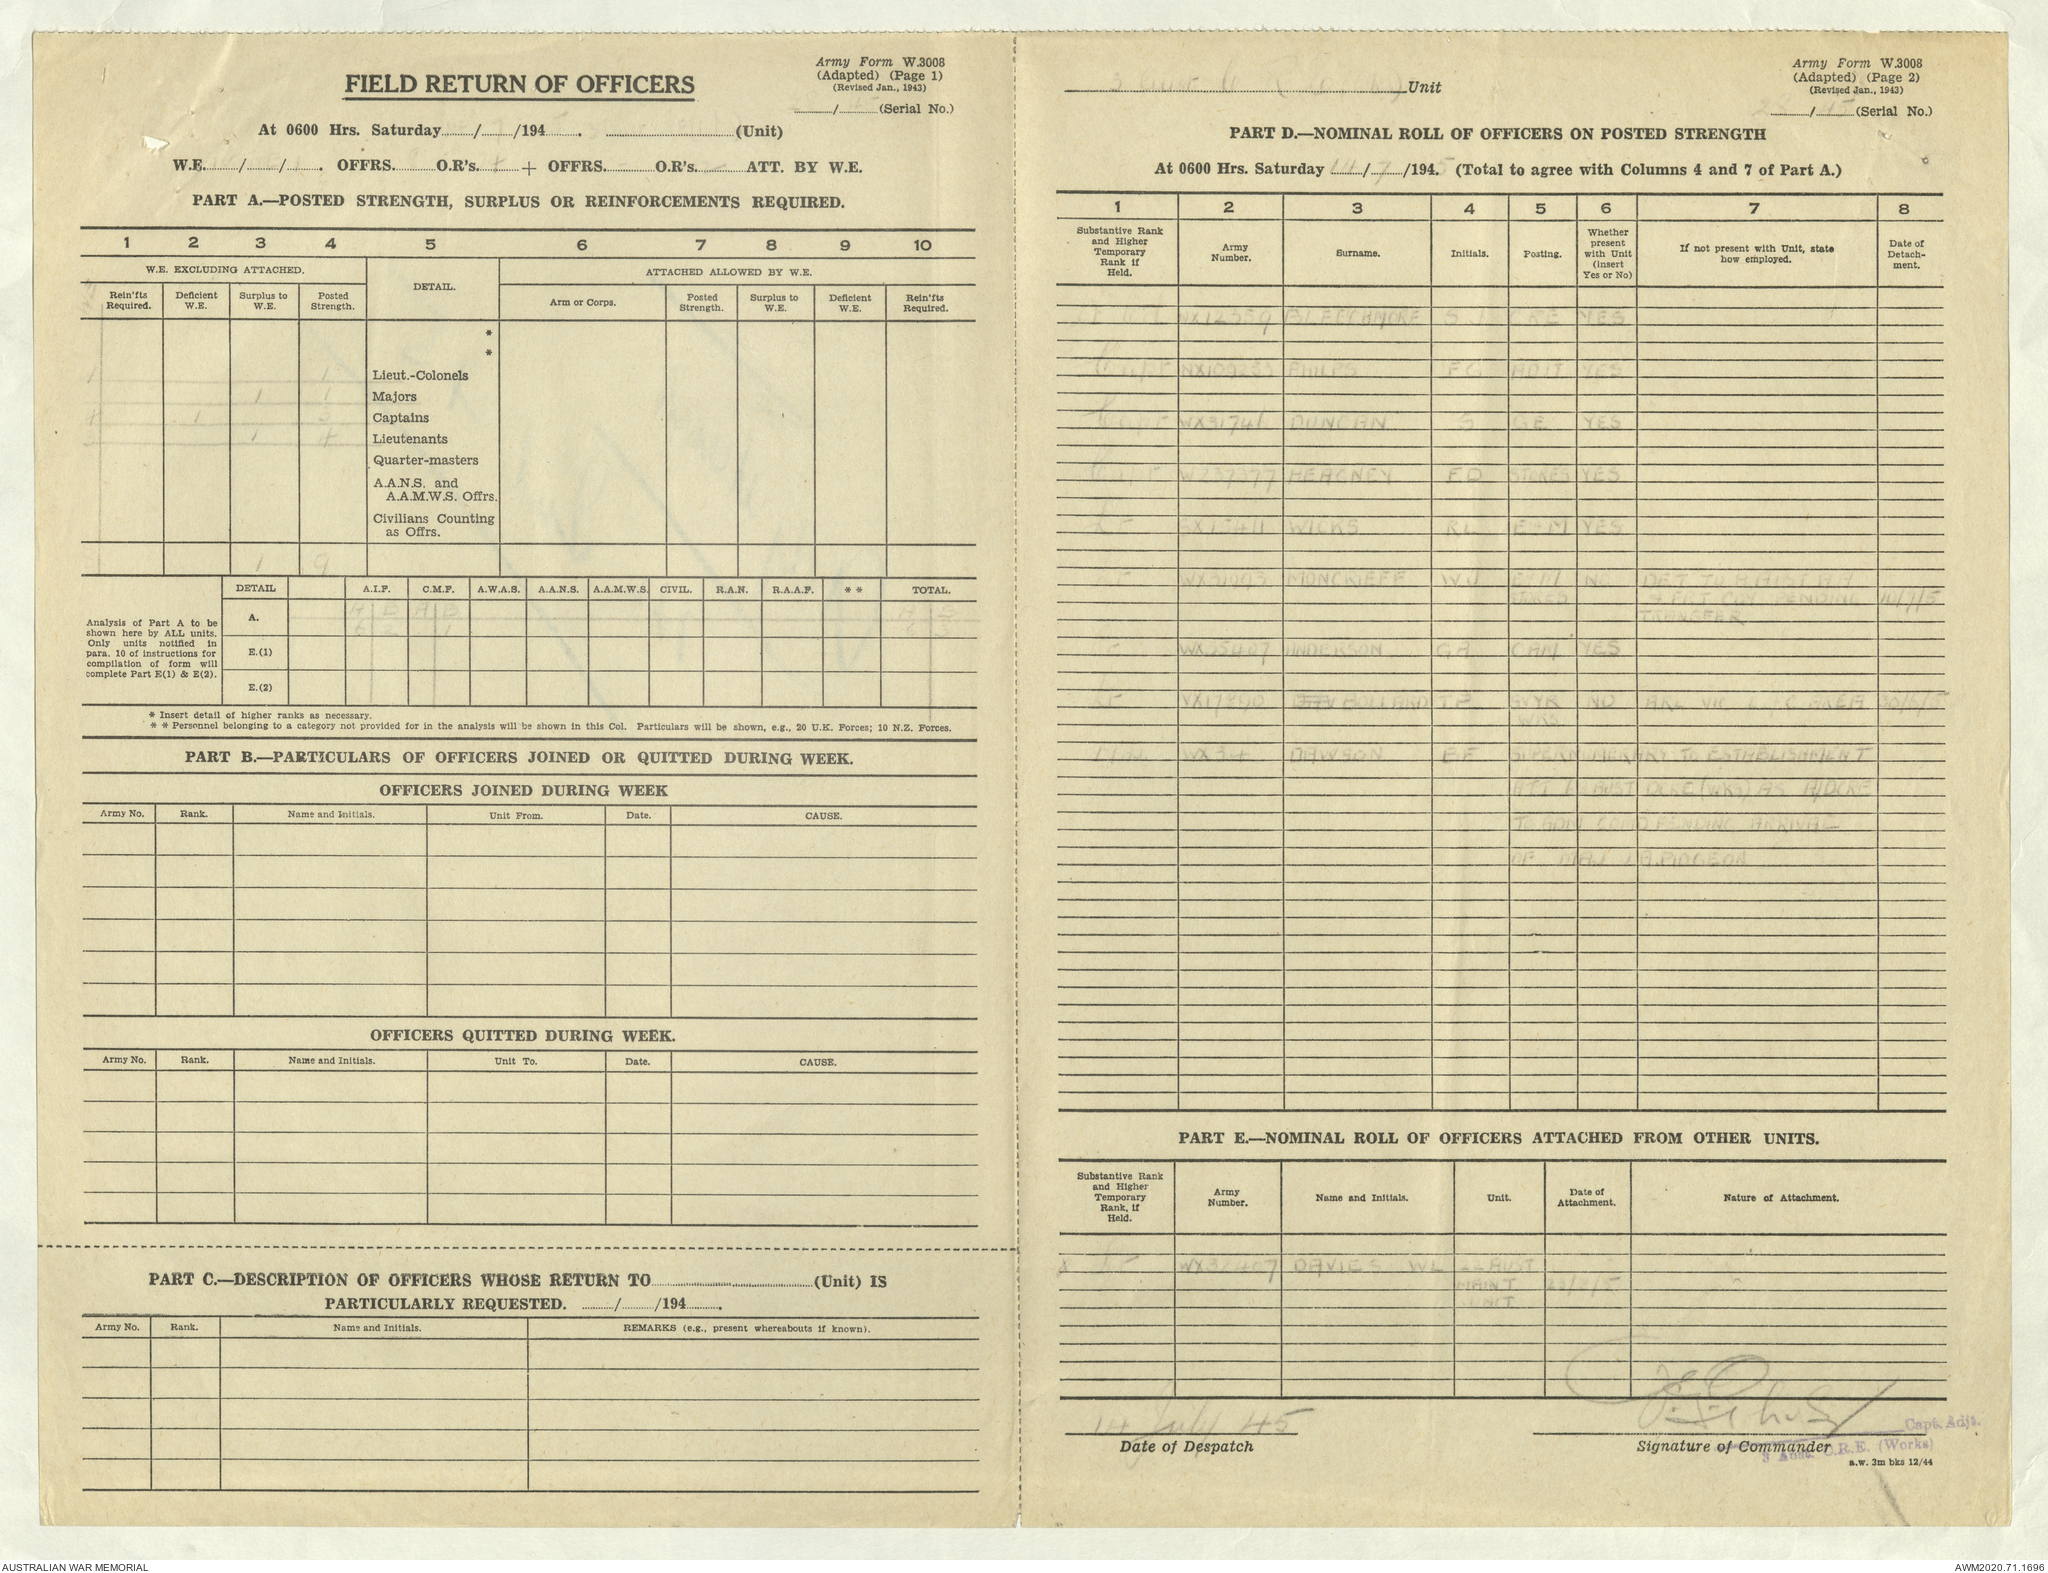 Army Form W.3008
(Adapted) (Page 1)
(Revised Jan., 1943)
FIELD RETURN OF OFFICERS
/ (Serial No.)
At 0600 Hrs. Saturday / /194 . (Unit)
W.E. / / . OFFRS. O.R's. + OFFRS. O.R's. ATT. BY W.E.
PART A.—POSTED STRENGTH, SURPLUS OR REINFORCEMENTS REQUIRED.
1 2 3 4 5 6 7 8 9 10
W.E. EXCLUDING ATTACHED. DETAIL. ATTACHED ALLOWED BY W.E.
Rein'fts Required. Deficient W.E. Surplus to W.E. Posted Strength. Arm or Corps. Posted Strength. Surplus to W.E. Deficient W.E. Rein'fts Required.
*
*
1 1 Lieut.-Colonels
1 1 Majors
4 1 3 Captains
3 1 4 Lieutenants
Quarter-masters
A.A.N.S. and
A.A.M.W.S. Offrs.
Civilians Counting
as Offrs.
1 9
DETAIL A.I.F. C.M.F. A.W.A.S. A.A.N.S. A.A.M.W.S. CIVIL. R.A.N. R.A.A.F. ** TOTAL.
Analysis of Part A to be
shown here by ALL units.
Only units notified in
para. 10 of instructions for
compilation of form will
complete Part E(1) & E(2).
A. A B A B A B
E.(1)
E.(2)
* Insert detail of higher ranks as necessary.
* * Personnel belonging to a category not provided for in the analysis will be shown in this Col. Particulars will be shown, e.g., 20 U.K. Forces; 10 N.Z. Forces.
PART B.—PARTICULARS OF OFFICERS JOINED OR QUITTED DURING WEEK.
OFFICERS JOINED DURING WEEK
Army No. Rank. Name and Initials. Unit From. Date. CAUSE.
OFFICERS QUITTED DURING WEEK.
Army No. Rank. Name and Initials. Unit To. Date. CAUSE.
PART C.—DESCRIPTION OF OFFICERS WHOSE RETURN TO (Unit) IS
PARTICULARLY REQUESTED. / /194 .
Army No. Rank. Name and Initials. REMARKS (e.g., present whereabouts if known).
Army Form W.3008
(Adapted) (Page 2)
(Revised Jan., 1943)
Unit
/ (Serial No.)
PART D.—NOMINAL ROLL OF OFFICERS ON POSTED STRENGTH
At 0600 Hrs. Saturday 14/7/194.5 (Total to agree with Columns 4 and 7 of Part A.)
1 2 3 4 5 6 7 8
Substantive Rank and Higher Temporary Rank if Held. Army Number. Surname. Initials. Posting. Whether present with Unit (Insert Yes or No) If not present with Unit, state how employed. Date of Detachment.
WX12359 BLEECHMORE CRE YES
Capt NX109283 PHILPS FG ADJT YES
Capt WX31746 DUNCAN S GE YES
Capt W237377 HEAGNEY FD STORES YES
Lt SX13411 WICKS RL E+M YES
Lt MONCRIEFF WJ E+M NO DET TO
STORES PENDING 10/7/5
TRANSFER
Lt WX35407 ANDERSON GA CAM YES
Lt VX17890 BOLLAND SVYR NO 30/6/5
WKS
Maj WX34 DAWSON EF SUPERNUMERARY TO ESTABLISHMENT
ATT AUST DCRE (WKS) AS A/DCRE
TO ADM COMD PENDING ARRIVAL
OF MAJ PIDGEON
PART E.—NOMINAL ROLL OF OFFICERS ATTACHED FROM OTHER UNITS.
Substantive Rank and Higher Temporary Rank, if Held. Army Number. Name and Initials. Unit. Date of Attachment. Nature of Attachment.
Lt DAVIES WL AUST
MAINT
UNIT
14 July 45
Date of Despatch
Signature of Commander
Capt. Adjt.
3 Aust. C.R.E. (Works)
a.w. 3m bks 12/44
AUSTRALIAN WAR MEMORIAL
AWM2020.71.1696